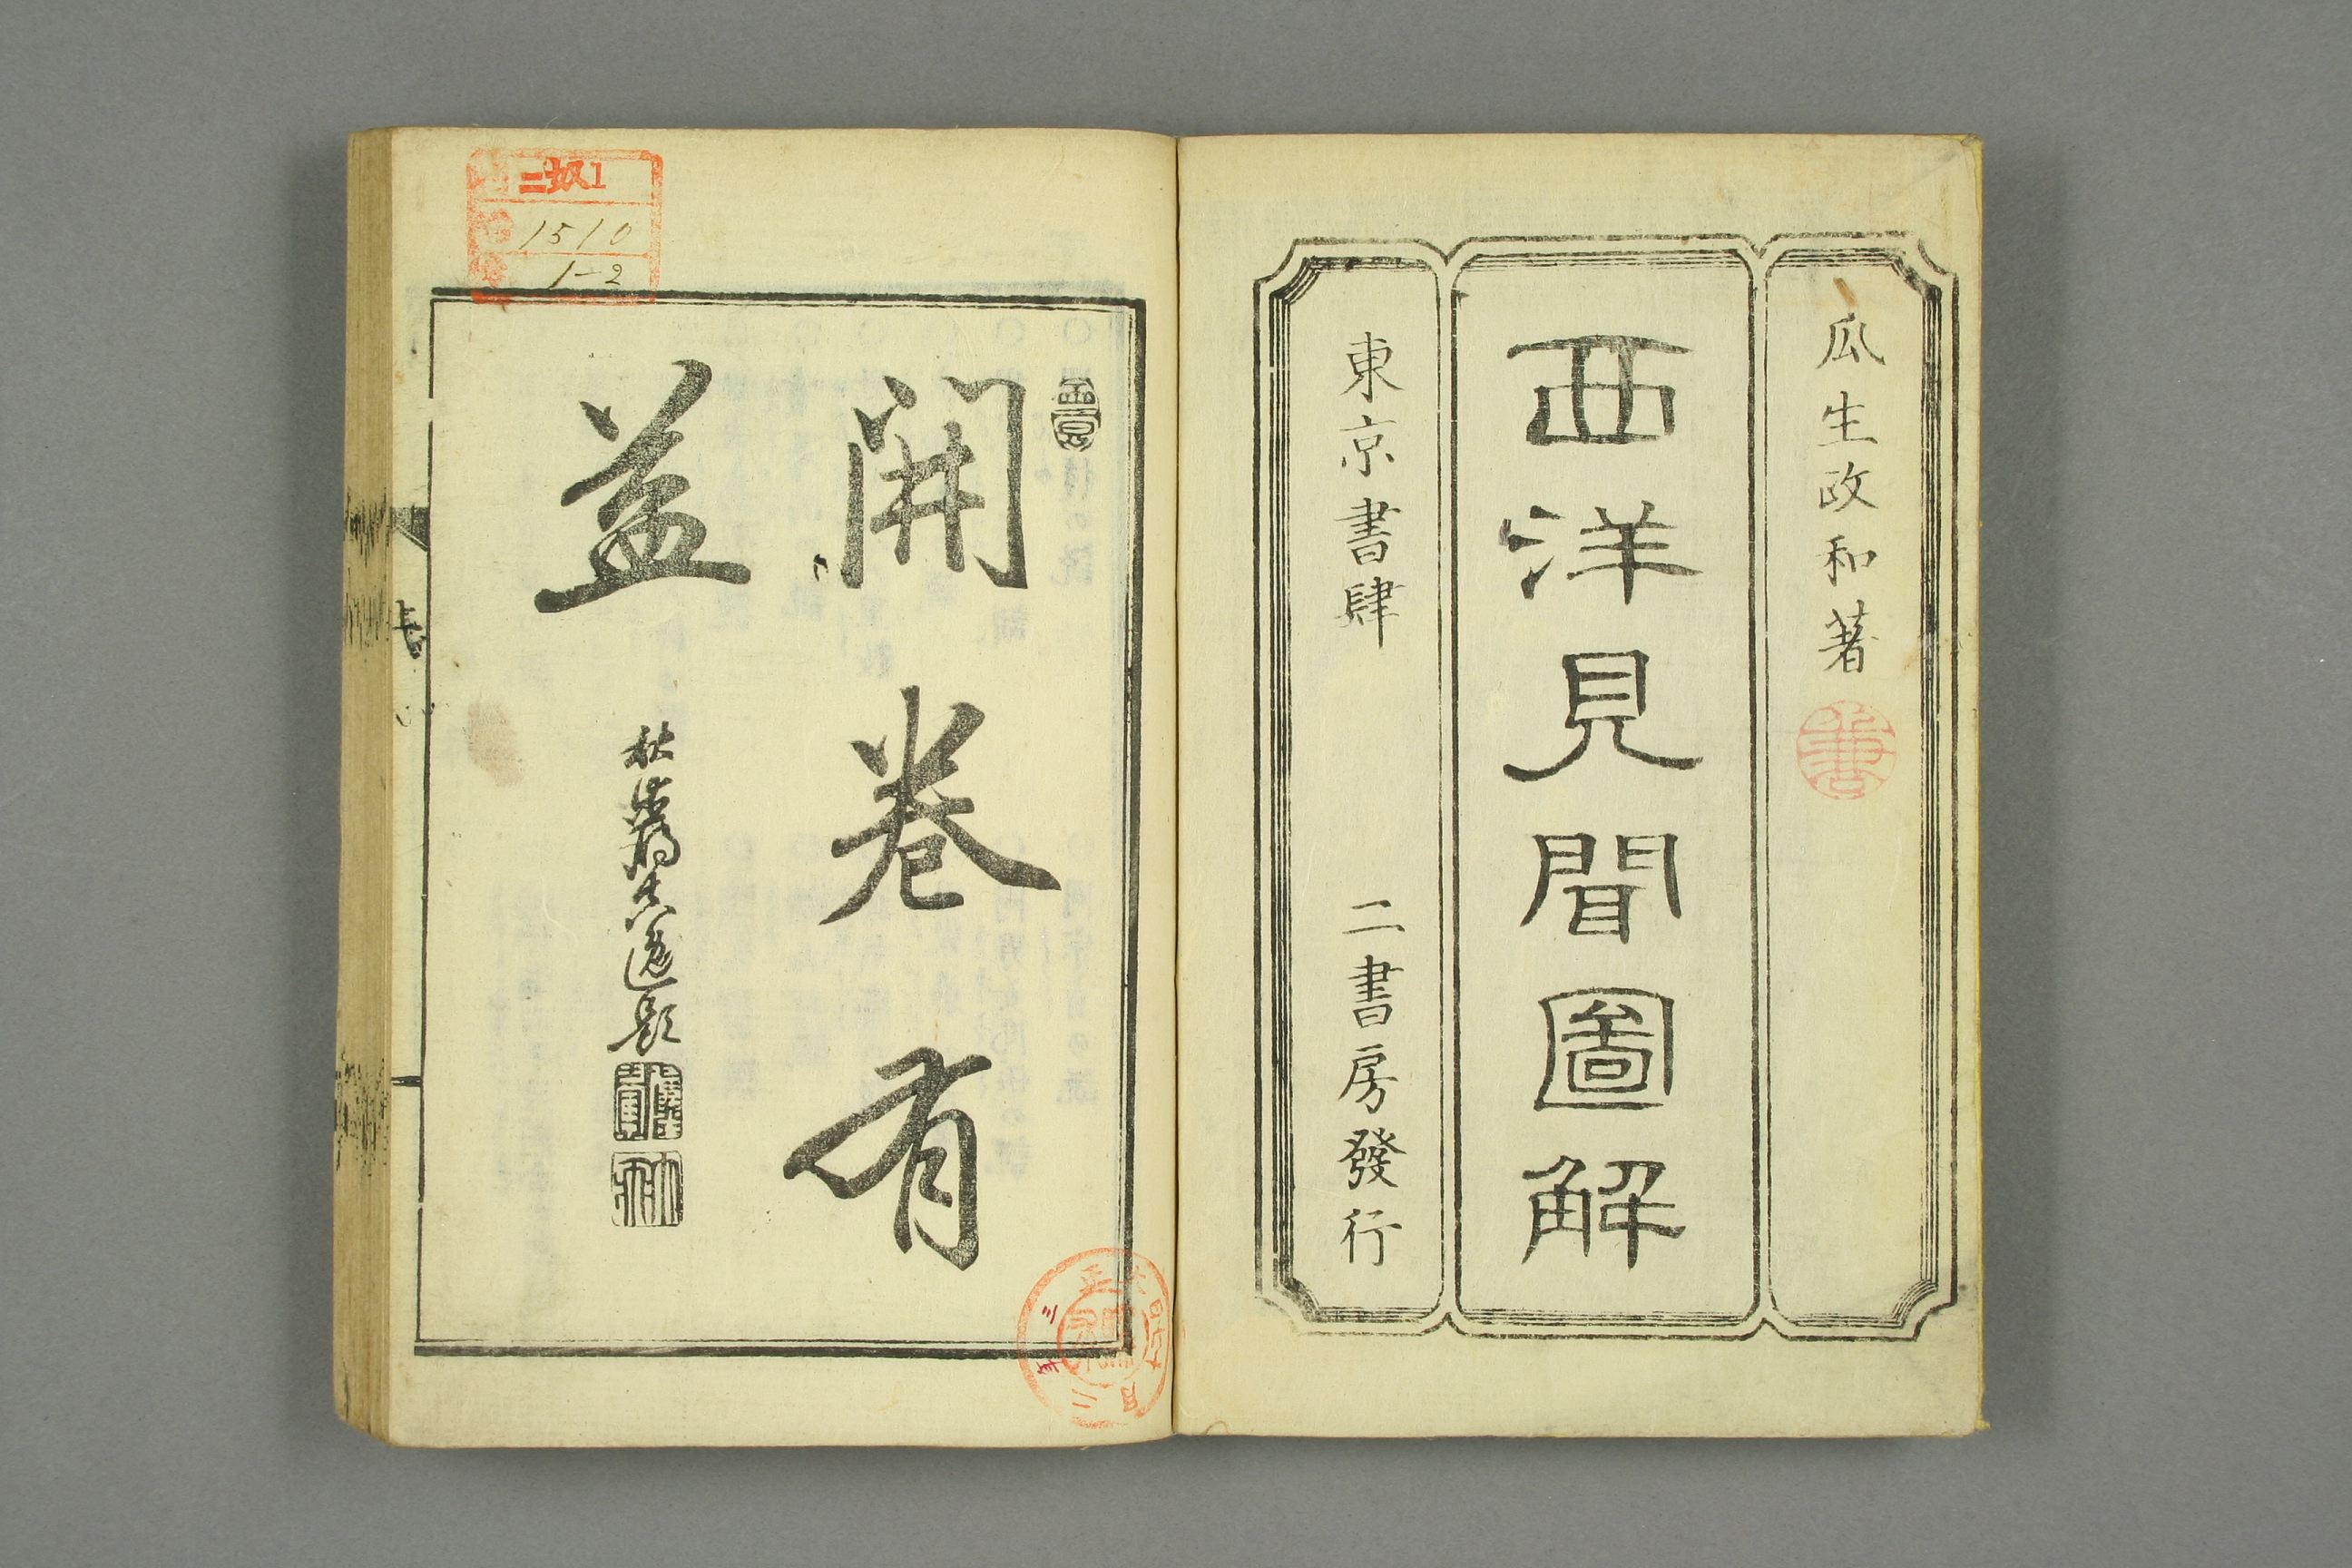 瓜生政和著
西洋見聞圖解
東京書肆 二書房發行
開卷有
益
二 1
1510
1-2